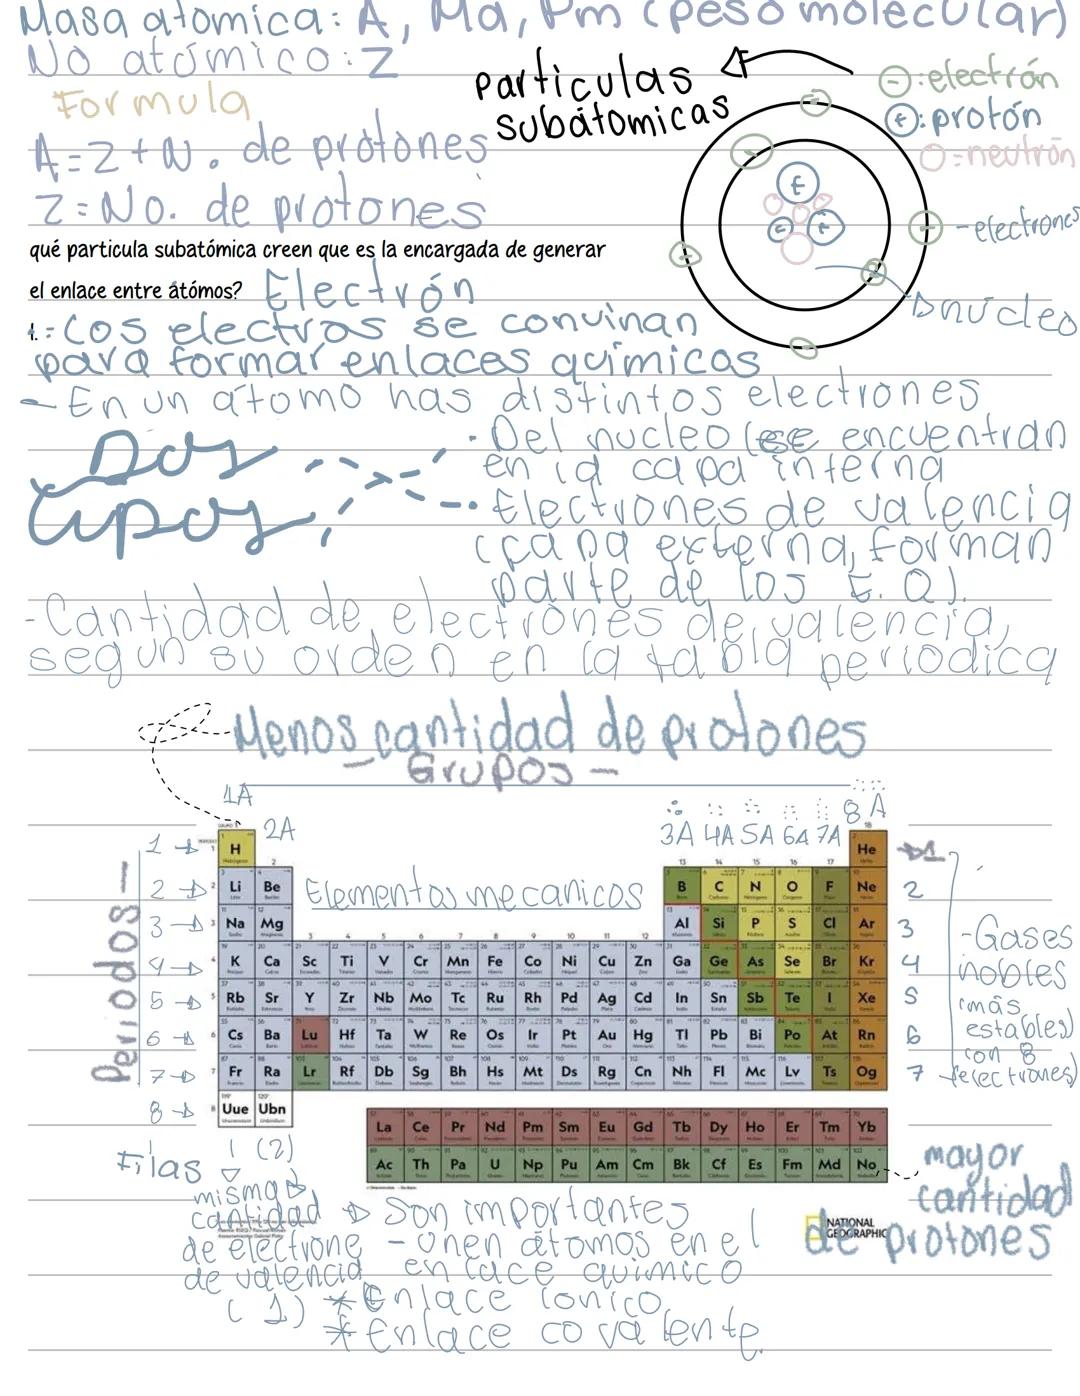 Masa atomica: A, Ma, Pm (peso molecular)
No atómico: Z
Formula
A=Z+N. de protones
Z=No. de protones
partículas
subátomicas
⊖:electrón
⊕:protón
O=neutrón
-electrones
núcleo
qué particula subatómica creen que es la encargada de generar
el enlace entre átómos? Electrón
1.- Los electros se convinan
para formar enlaces químicos
- En un átomo has distintos electrones
Dos
tipos
· Del nucleo (se encuentran
en la capa interna
· Electrones de valencia
(capa externa, forman
parte de los E.Q).
-Cantidad de electrones de valencia,
segun su orden en la tabla periodica
Menos cantidad de protones
- Grupos -
1A 2A 3A 4A 5A 6A 7A 8A
Elementos mecanicos
Periodos
1 2 3 4 5 6 7 8
Filas
H He
Li Be B C N O F Ne
Na Mg Al Si P S Cl Ar
3 4 5 6 7 8 9 10 11 12 13 14 15 16 17 18
K Ca Sc Ti V Cr Mn Fe Co Ni Cu Zn Ga Ge As Se Br Kr
Rb Sr Y Zr Nb Mo Tc Ru Rh Pd Ag Cd In Sn Sb Te I Xe
Cs Ba Lu Hf Ta W Re Os Ir Pt Au Hg Tl Pb Bi Po At Rn
Fr Ra Lr Rf Db Sg Bh Hs Mt Ds Rg Cn Nh Fl Mc Lv Ts Og
Uue Ubn
La Ce Pr Nd Pm Sm Eu Gd Tb Dy Ho Er Tm Yb
Ac Th Pa U Np Pu Am Cm Bk Cf Es Fm Md No
1 2 3 4 5 6 7
-Gases
nobles
(más
estables)
con 8
electrones)
1 (2)
misma
cantidad
de electrone
de valencia
(1)
Son importantes
- Unen átomos en el
enlace químico
* Enlace ionico
* Enlace covalente.
mayor
cantidad
de protones
NATIONAL
GEOGRAPHIC